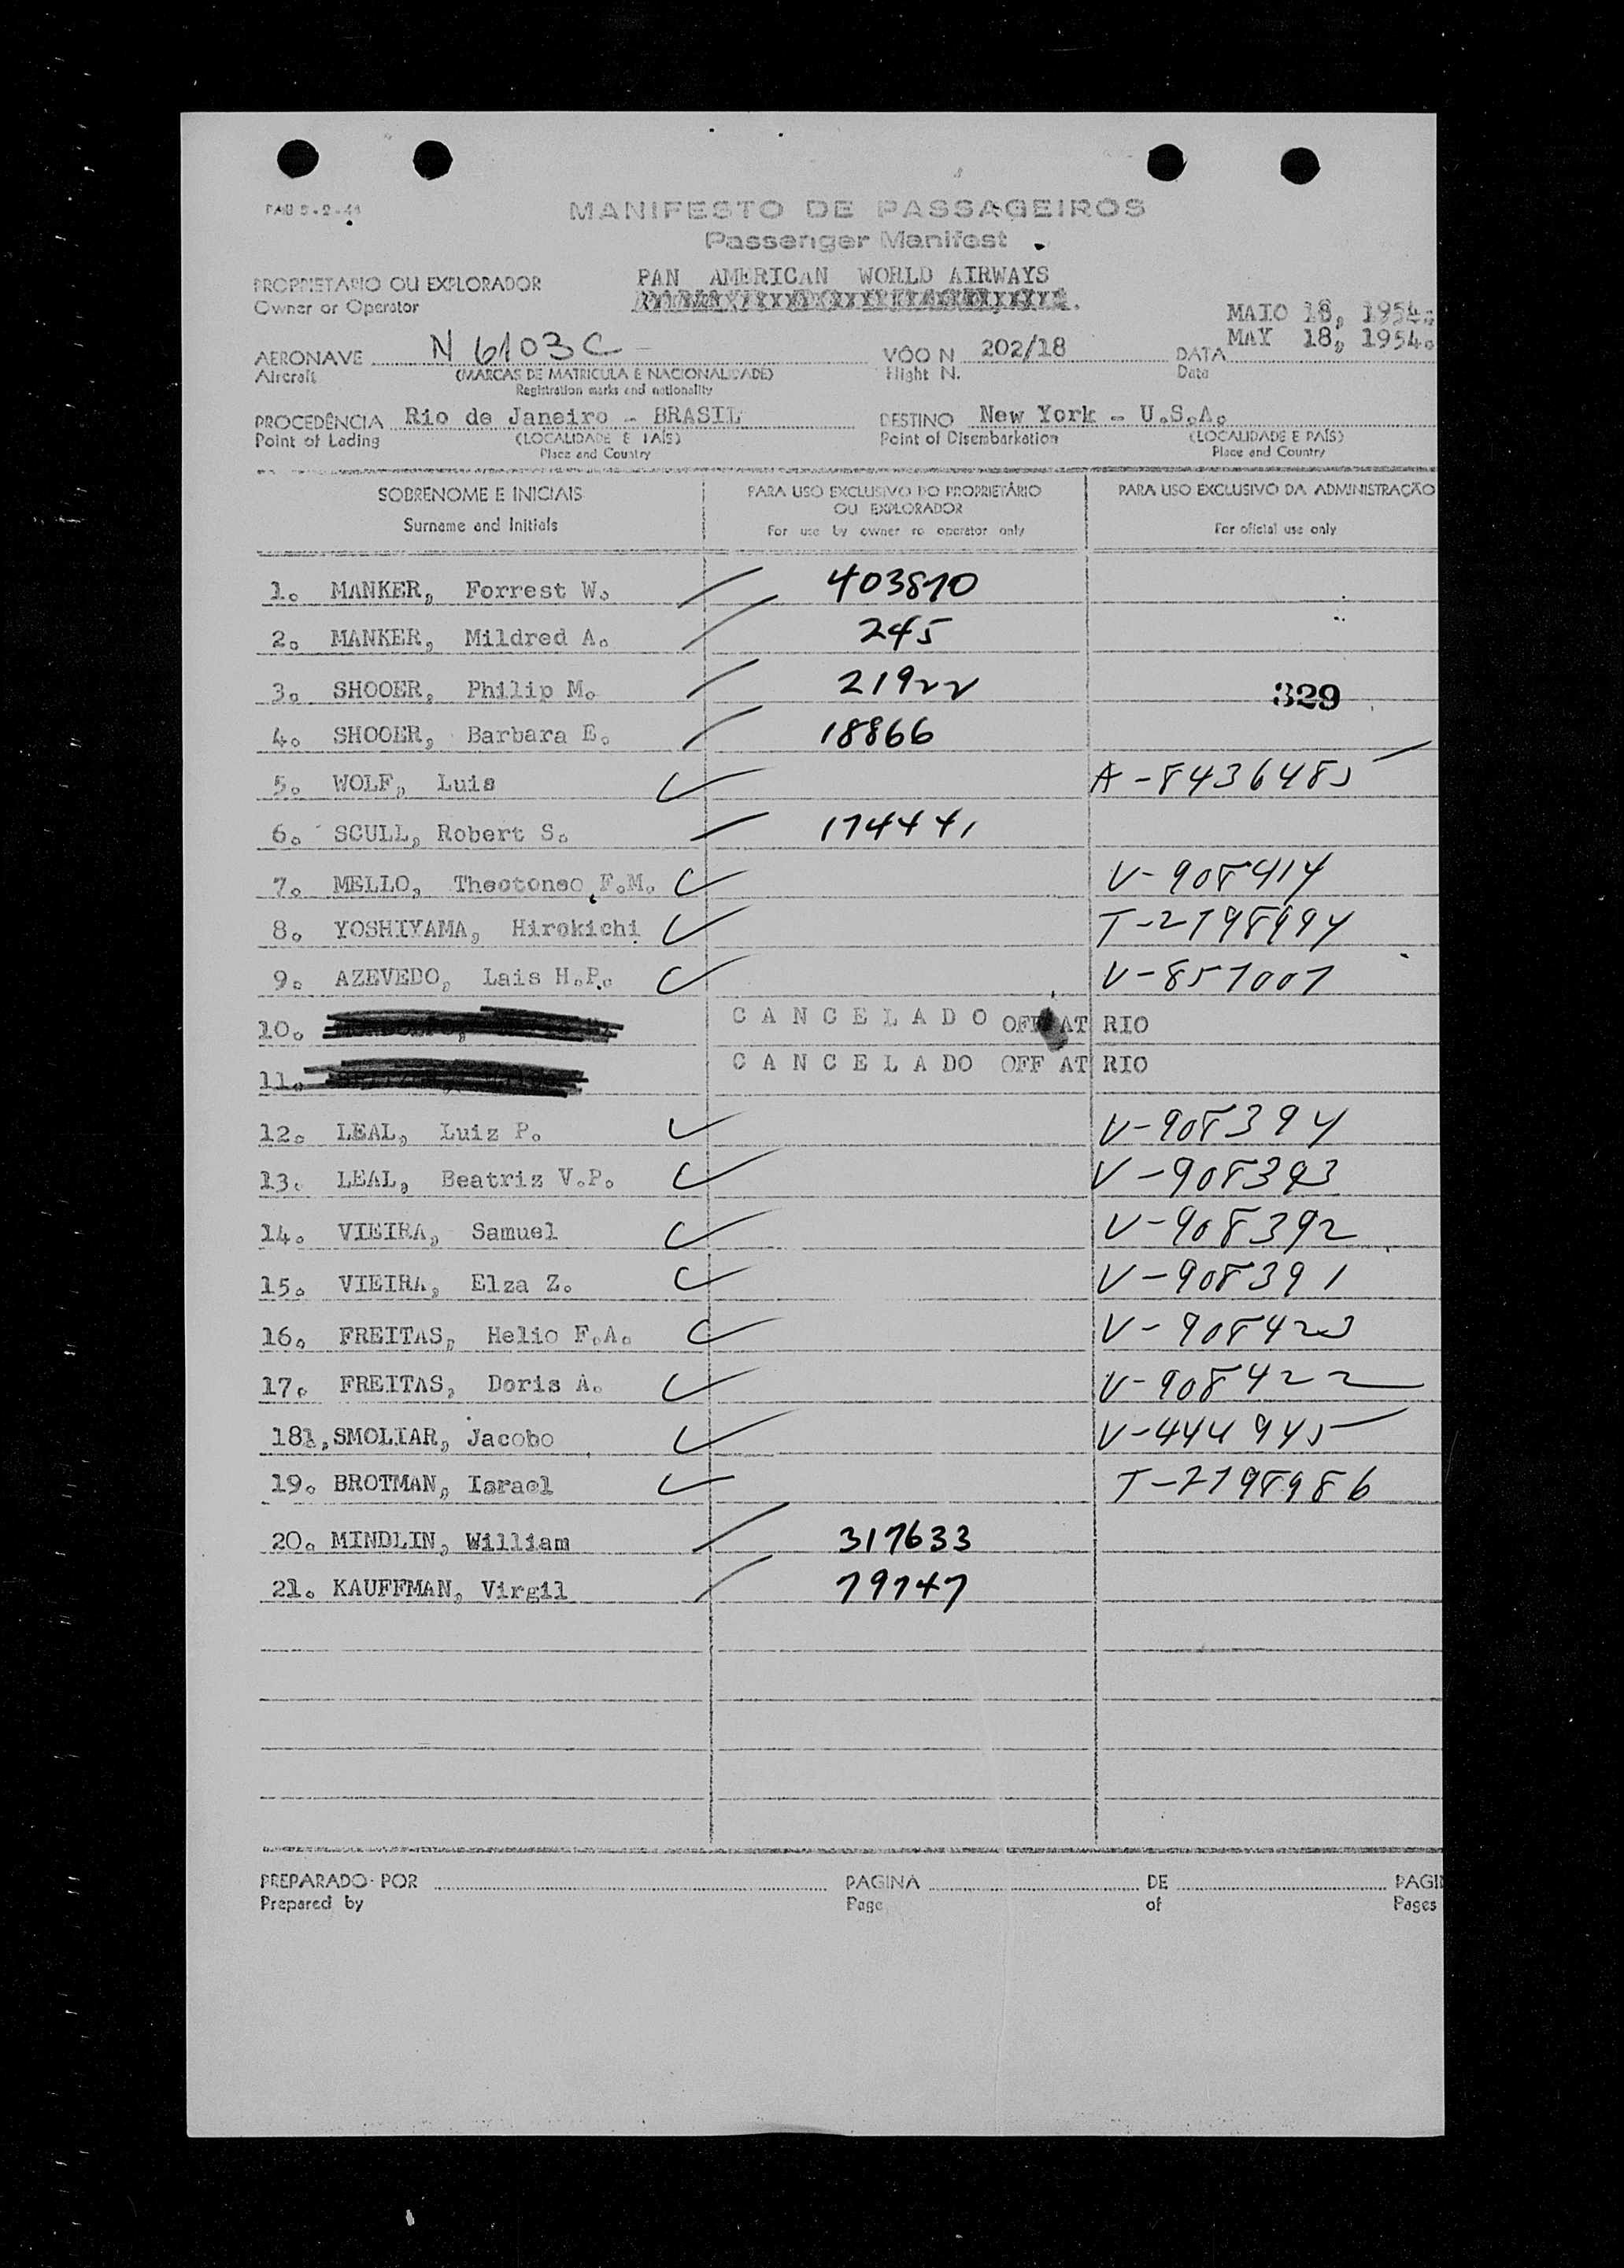 PAU 5-2-44
MANIFESTO DE PASSAGEIROS
Passenger Manifest
PROPRIETARIO OU EXPLORADOR PAN AMERICAN WORLD AIRWAYS
Owner or Operator
MAIO 18, 1954.
MAY 18, 1954.
AERONAVE N 6103C VÔO N 202/18 DATA
Aircraft (MARCAS DE MATRICULA E NACIONALIDADE) Flight N. Date
Registration marks and nationality
PROCEDÊNCIA Rio de Janeiro - BRASIL DESTINO New York - U.S.A.
Point of Lading (LOCALIDADE E PAÍS) Point of Disembarkation (LOCALIDADE E PAÍS)
Place and Country Place and Country
SOBRENOME E INICIAIS PARA USO EXCLUSIVO DO PROPRIETÁRIO PARA USO EXCLUSIVO DA ADMINISTRAÇÃO
OU EXPLORADOR
Surname and Initials For use by owner ro operator only For oficial use only
1. MANKER, Forrest W. 403870
2. MANKER, Mildred A. 245
3. SHOOER, Philip M. 21922 329
4. SHOOER, Barbara E. 18866
5. WOLF, Luis A-8436485
6. SCULL, Robert S. 174441
7. MELLO, Theotonso F.M. V-908414
8. YOSHIYAMA, Hirokichi T-2798994
9. AZEVEDO, Lais H.P. V-857007
10. CANCELADO OFF AT RIO
11. CANCELADO OFF AT RIO
12. LEAL, Luiz P. V-908394
13. LEAL, Beatriz V.P. V-908393
14. VIEIRA, Samuel V-908392
15. VIEIRA, Elza Z. V-908391
16. FREITAS, Helio F.A. V-908423
17. FREITAS, Doris A. V-908422
18. SMOLIAR, Jacobo V-444945
19. BROTMAN, Israel T-2798986
20. MINDLIN, William 317633
21. KAUFFMAN, Virgil 79747
PREPARADO POR PAGINA DE PAGI
Prepared by Page of Pages